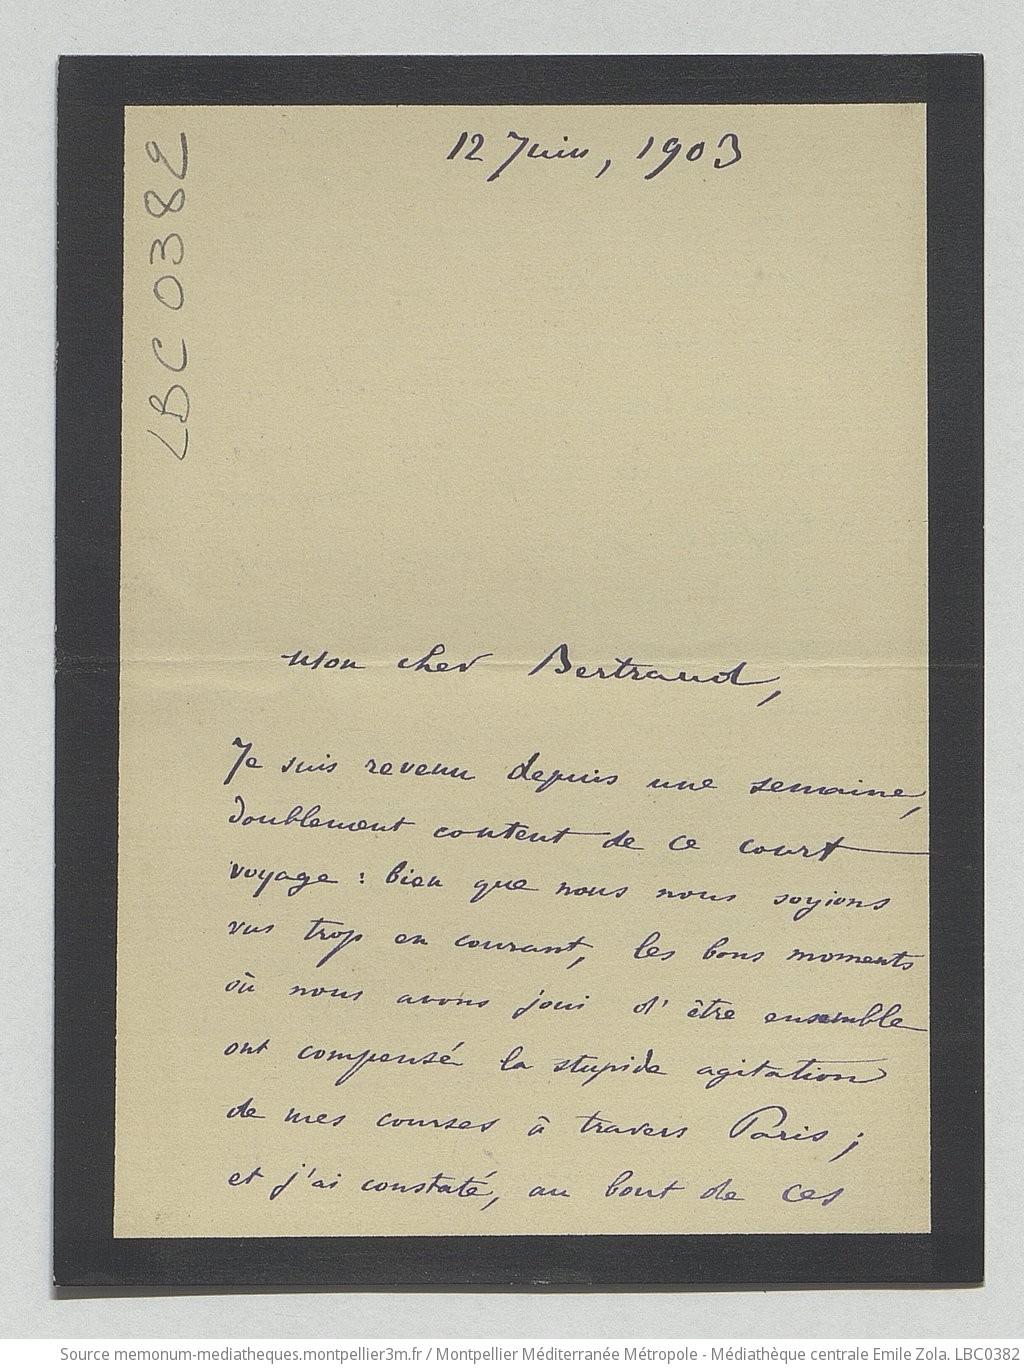 12 Juin, 1903
LBC0382
Mon cher Bertrand,
Je suis revenu depuis une semaine,
doublement content de ce court
voyage : bien que nous nous soyions
vus trop en courant, les bons moments
où nous avons joui d'être ensemble
ont compensé la stupide agitation
de mes courses à travers Paris ;
et j'ai constaté, au bout de ces
Source memonum-mediatheques.montpellier3m.fr / Montpellier Méditerranée Métropole - Médiathèque centrale Emile Zola. LBC0382